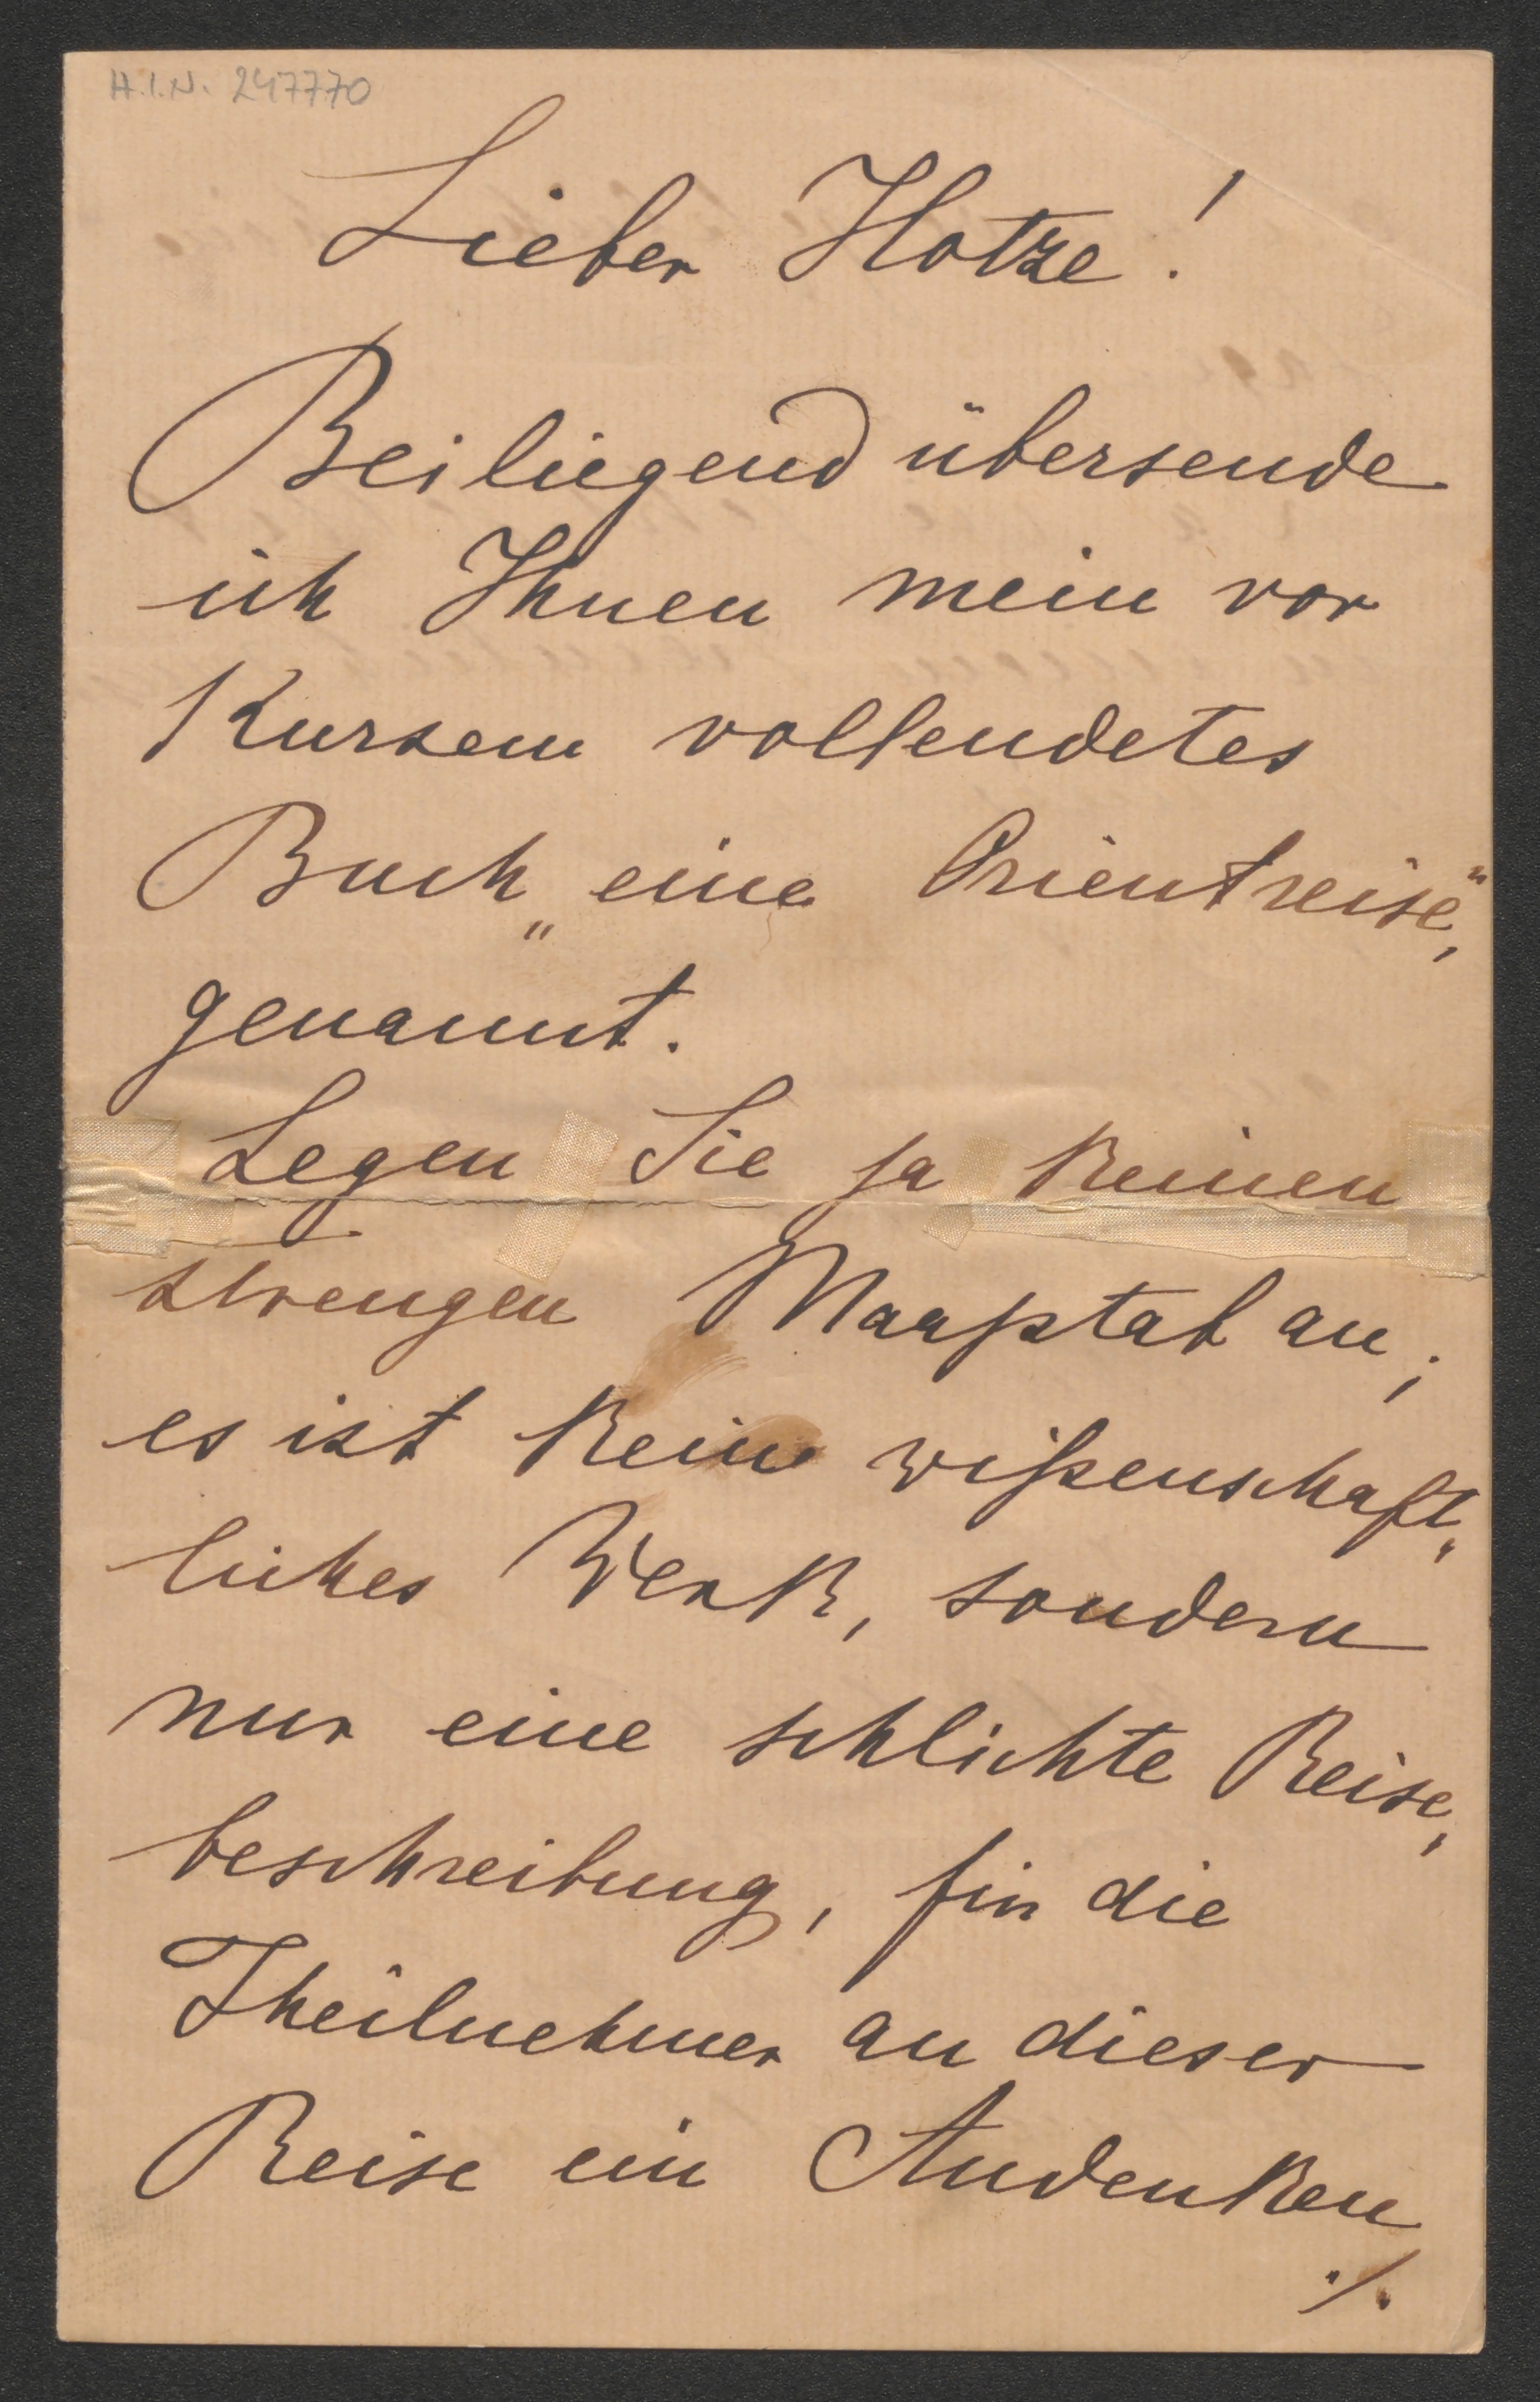 H.I.N. 247770
Lieber Hotze!
Beiliegend übersende
ich Ihnen mein vor
Kurzem vollendetes
Buch „eine Orientreise“,
genannt.
Legen Sie ja keinen
strengen Maaßstab an;
es ist kein wißenschaft„
liches Werk, sondern
nur eine schlichte Reise„
beschreibung, für die
Theilnehmer an dieser
Reise ein Andenken
./.